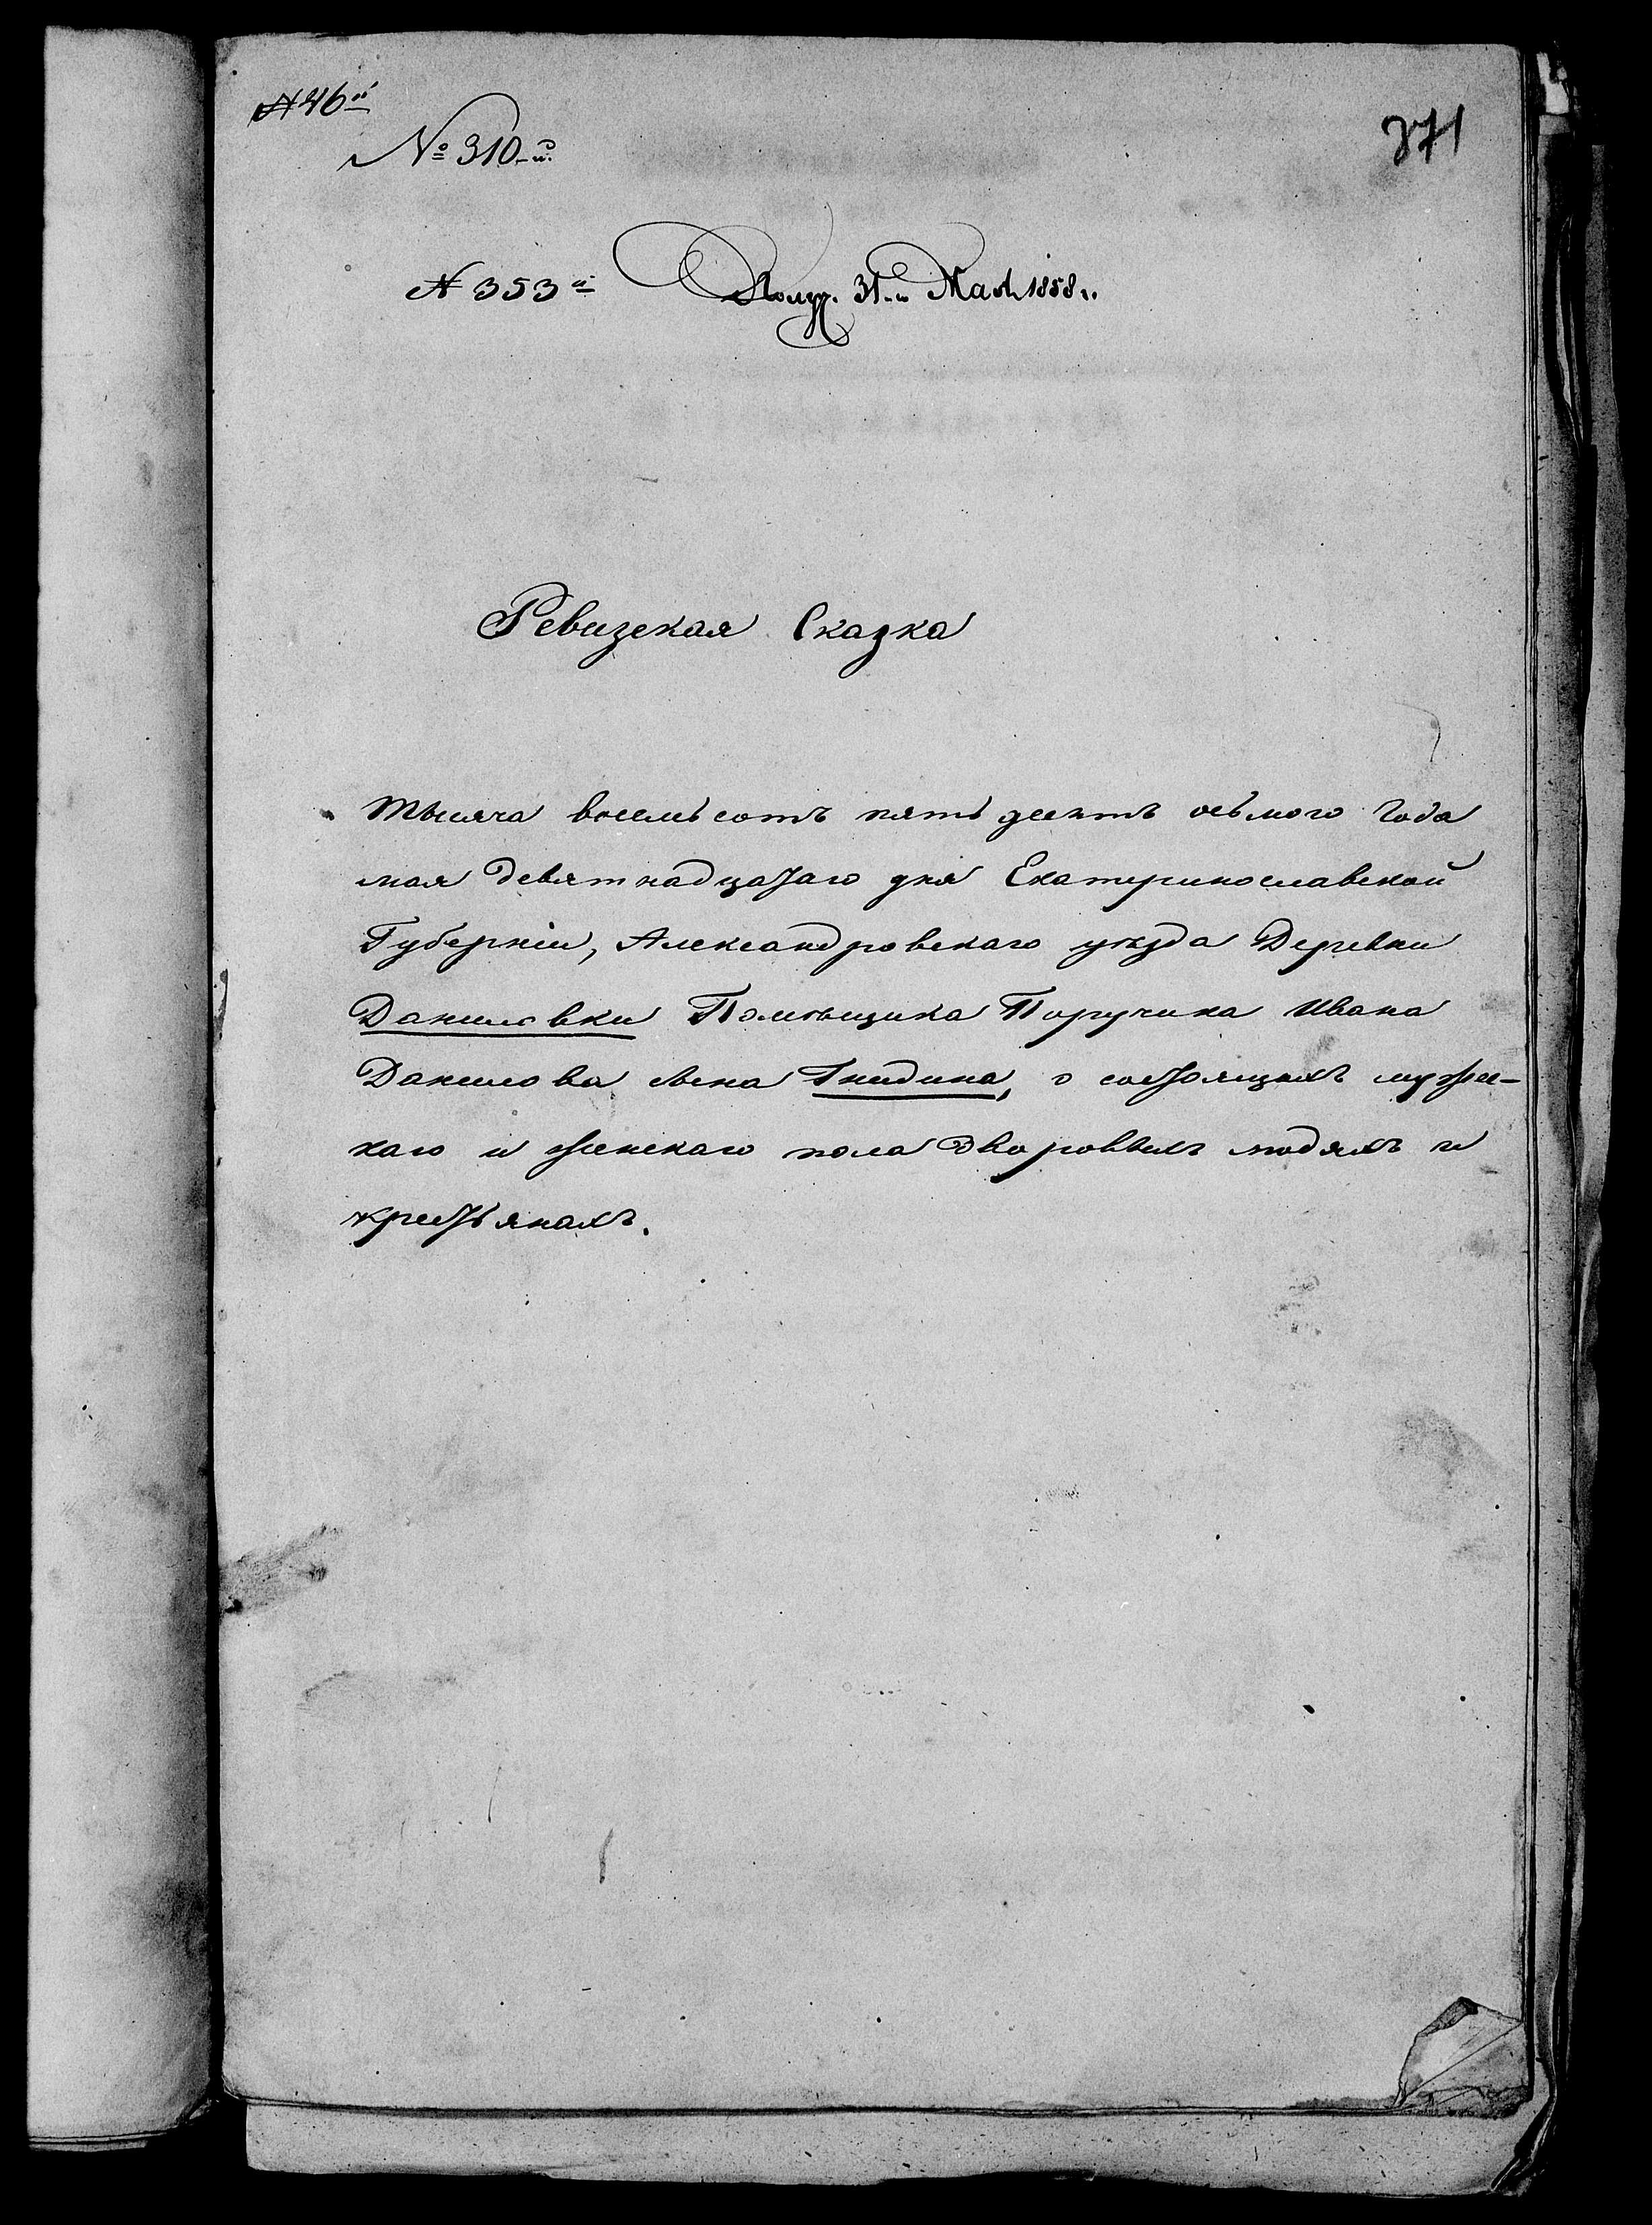 № 46й
№ 310-й.
371
№ 353й Получ. 31-го Мая 1858 г.
Ревизская Сказка
Тысяча восемьсотъ пятьдесятъ осьмого года
мая девятнадцатаго дня Екатеринославской
Губерніи, Александровскаго уѣзда Деревни
Даниловки Помѣщика Поручика Ивана
Данилова сына Гнидина, о состоящихъ мужес-
каго и женскаго пола дворовыхъ людяхъ и
крестьянахъ.